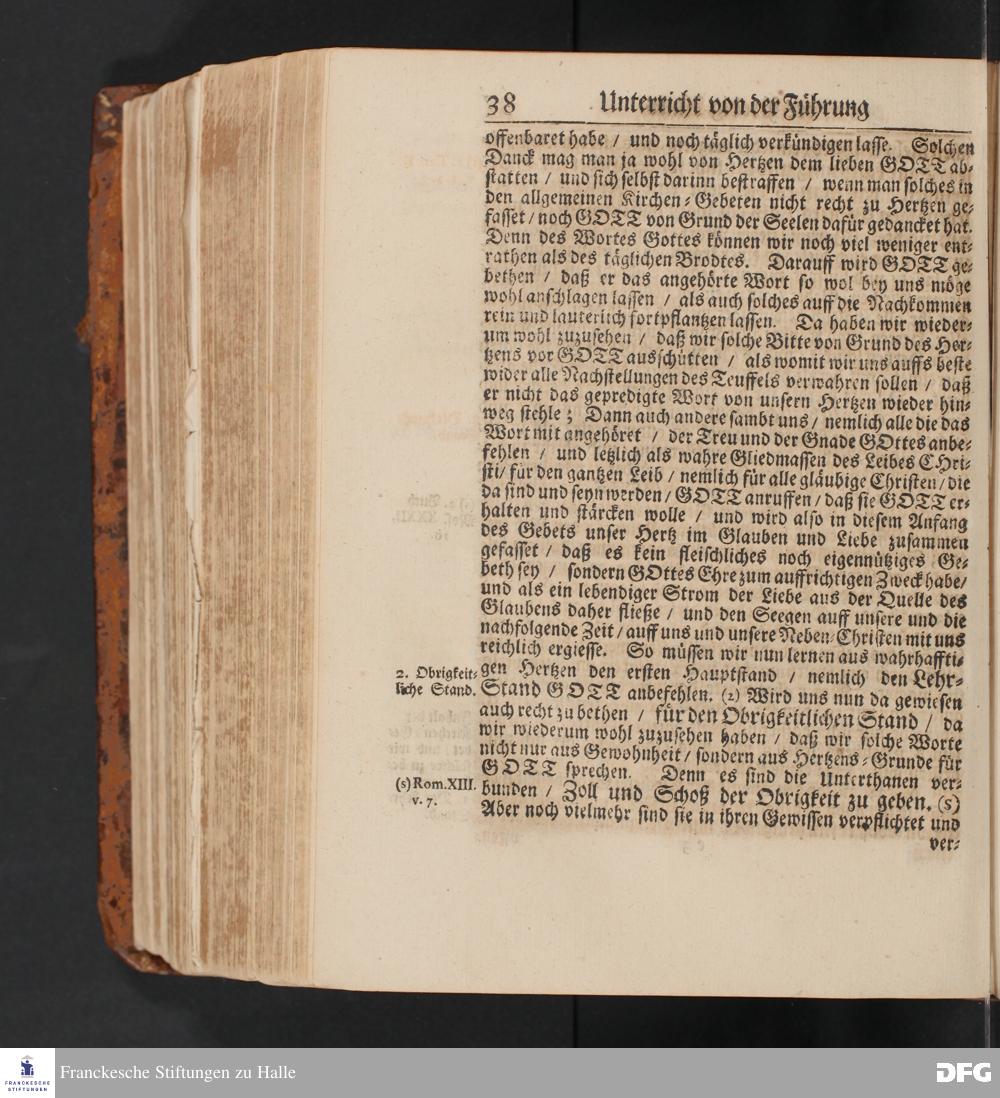 38 Unterricht von der Führung
offenbaret habe / und noch täglich verkündigen lasse. Solchen
Danck mag man ja wohl von Hertzen dem lieben GOTT ab-
statten / und sich selbst darinn bestraffen / wenn man solches in
den allgemeinen Kirchen-Gebeten nicht recht zu Hertzen ge-
fasset / noch GOTT von Grund der Seelen dafür gedancket hat.
Denn des Wortes Gottes können wir noch viel weniger ent-
rathen als des täglichen Brodtes. Darauff wird GOTT ge-
bethen / daß er das angehörte Wort so wol bey uns möge
wohl anschlagen lassen / als auch solches auff die Nachkommen
rein und lauterlich fortpflantzen lassen. Da haben wir wieder-
um wohl zuzusehen / daß wir solche Bitte von Grund des Her-
tzens vor GOTT ausschütten / als womit wir uns auffs beste
wider alle Nachstellungen des Teuffels verwahren sollen / daß
er nicht das gepredigte Wort von unsern Hertzen wieder hin-
weg stehle; Dann auch andere sambt uns / nemlich alle die das
Wort mit angehöret / der Treu und der Gnade GOttes anbe-
fehlen / und letzlich als wahre Gliedmassen des Leibes CHri-
sti / für den gantzen Leib / nemlich für alle gläubige Christen / die
da sind und seyn werden / GOTT anruffen / daß sie GOTT er-
halten und stärcken wolle / und wird also in diesem Anfang
des Gebets unser Hertz im Glauben und Liebe zusammen
gefasset / daß es kein fleischliches noch eigennütziges Ge-
beth sey / sondern GOttes Ehre zum auffrichtigen Zweck habe /
und als ein lebendiger Strom der Liebe aus der Quelle des
Glaubens daher fließe / und den Seegen auff unsere und die
nachfolgende Zeit / auff uns und unsere Neben-Christen mit uns
reichlich ergiesse. So müssen wir nun lernen aus wahrhaffti-
gen Hertzen den ersten Hauptstand / nemlich den Lehr-
Stand GOTT anbefehlen. (2) Wird uns nun da gewiesen
auch recht zu bethen / für den Obrigkeitlichen Stand / da
wir wiederum wohl zuzusehen haben / daß wir solche Worte
nicht nur aus Gewohnheit / sondern aus Hertzens-Grunde für
GOTT sprechen. Denn es sind die Unterthanen ver-
bunden / Zoll und Schoß der Obrigkeit zu geben. (s)
Aber noch vielmehr sind sie in ihren Gewissen verpflichtet und
ver-
2. Obrigkeit-
liche Stand.
(s) Rom. XIII.
v. 7.
FRANCKESCHE
STIFTUNGEN
Franckesche Stiftungen zu Halle
DFG